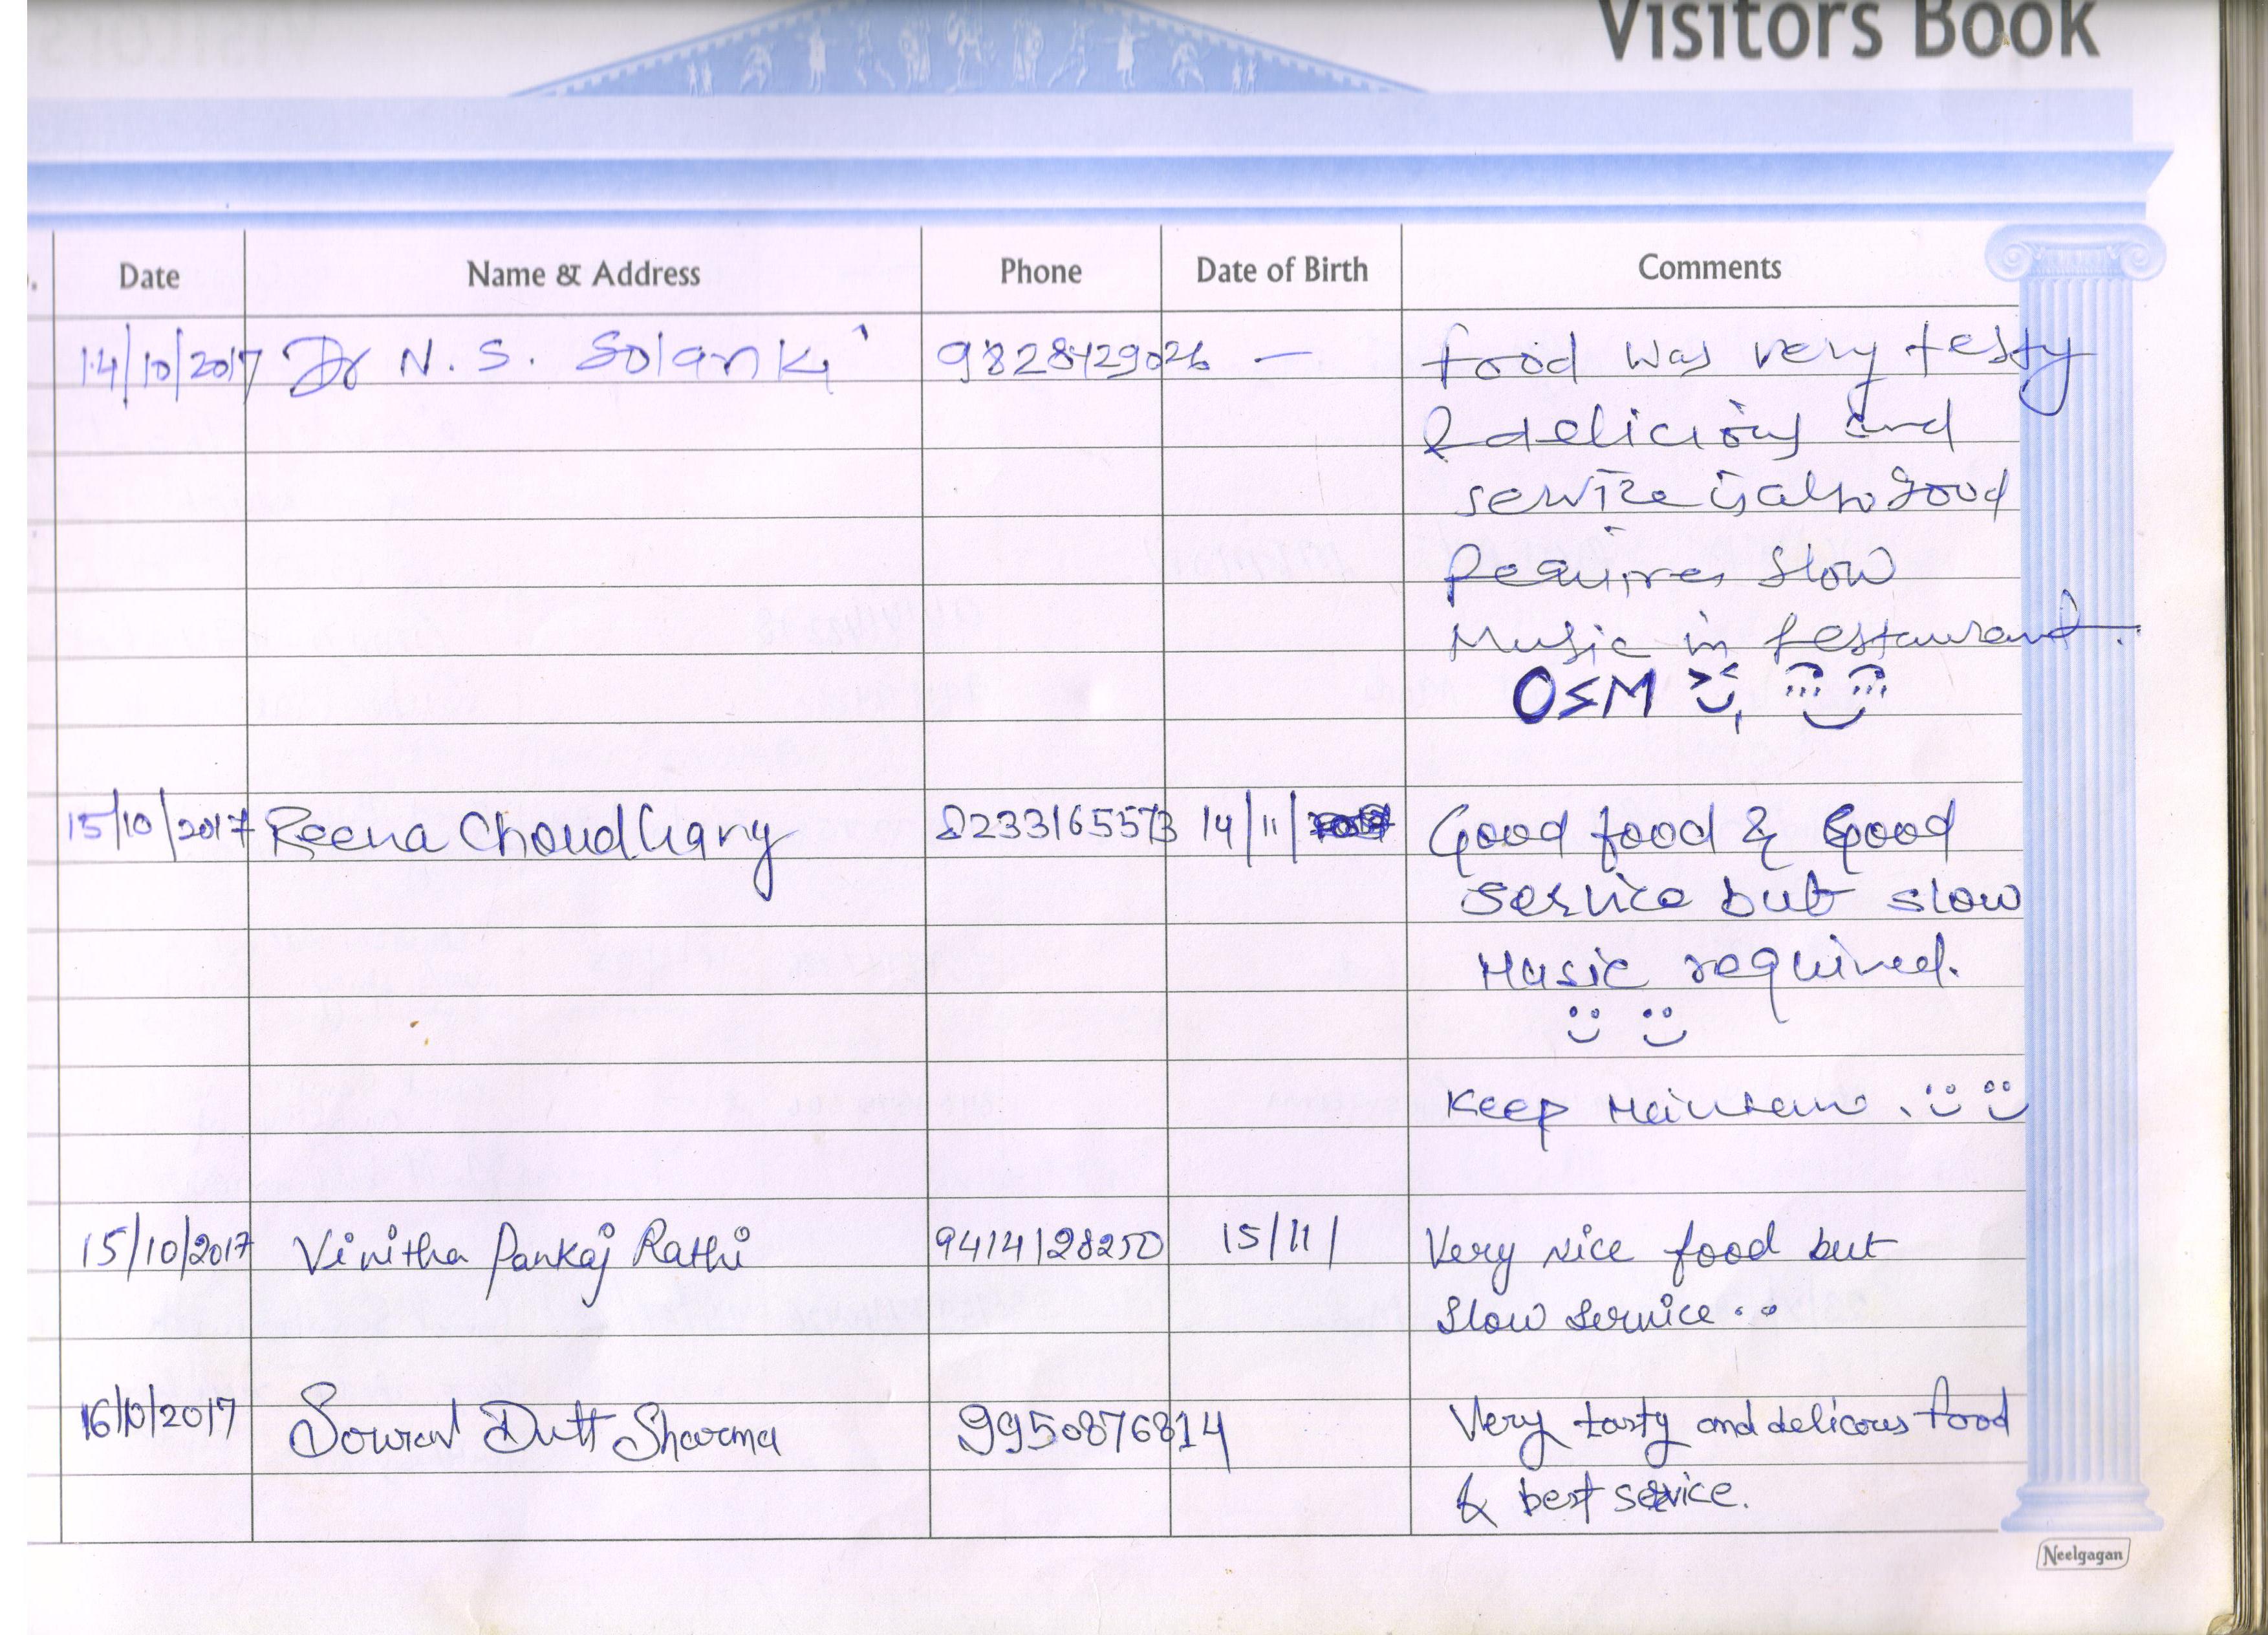 Visitors Book
Date Name & Address Phone Date of Birth Comments
14/10/2017 Dr N. S. Solanki 9828429026 — food was very testy
& delicious and
service is also good
Requires slow
Music in Restaurant.
OSM
15/10/2017 Reena Choudhary 8233165573 14/11/ Good food & Good
service but slow
Music required.
Keep Maintain.
15/10/2017 Vinitha Pankaj Rathi 9414128250 15/11/ Very nice food but
slow service...
16/10/2017 Dutt Sharma 9950876814 Very tasty and delicous food
& best service.
Neelgagan